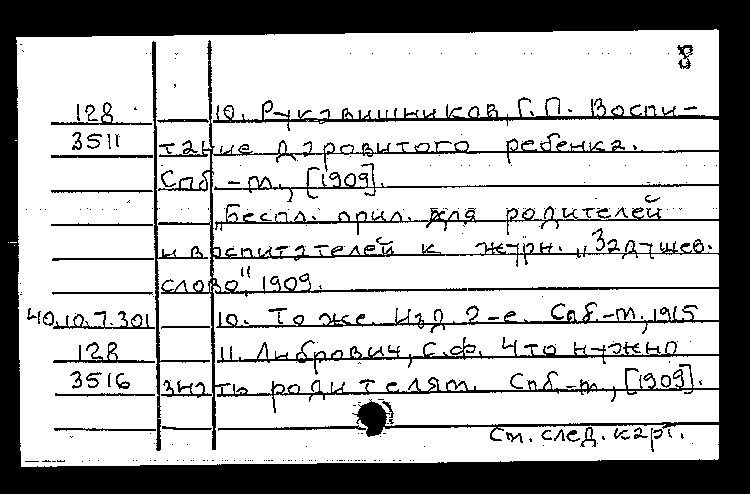 8
128 10. Рукавишников, Г.П. Воспи-
3511 тание даровитого ребенка.
Спб.-м., [1909].
„Беспл. прил. для родителей
и воспитателей к журн. „Задушев.
слово", 1909.
40.10.7.301 10. То же. Изд. 2-е. Спб.-м., 1915
128 11. Либрович, С.Ф. Что нужно
3516 знать родителям. Спб.-м., [1909].
См. след. карт.